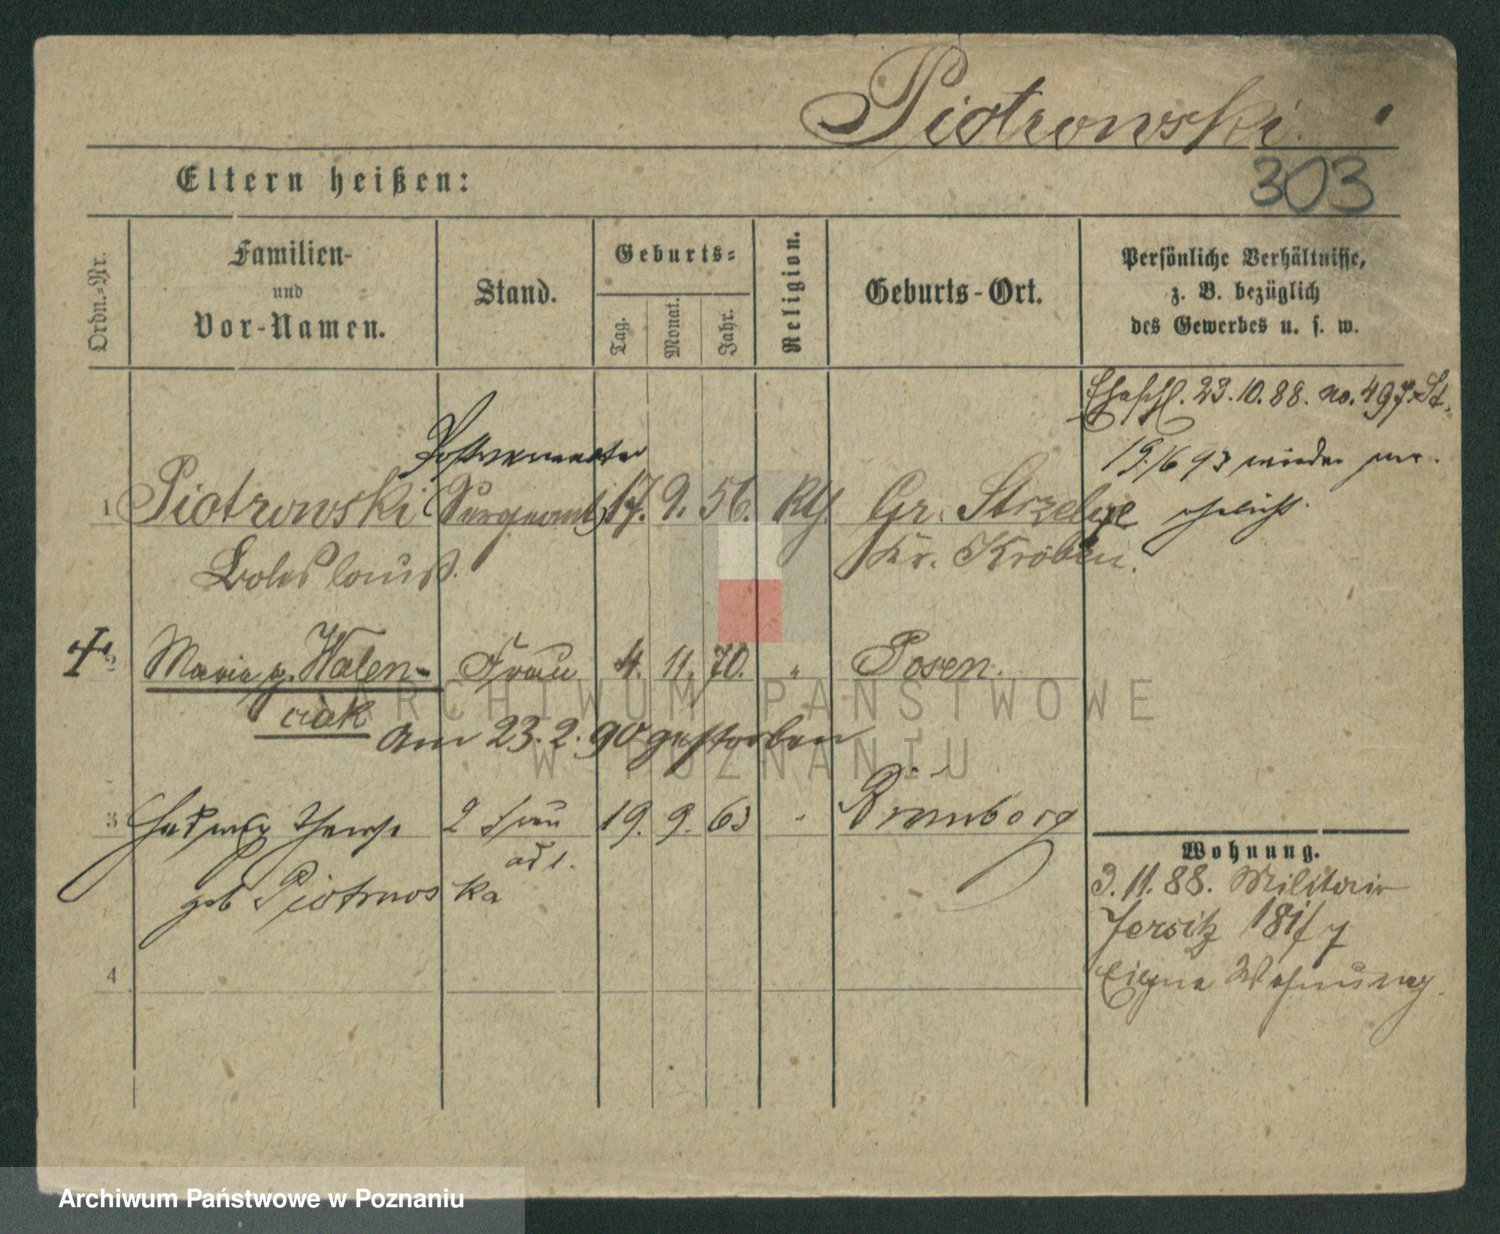 Piotrowski.
303
Eltern heißen:
Ordn.-Nr.
Familien-
und
Vor-Namen.
Stand.
Geburts-
Tag.
Monat.
Jahr.
Religion.
Geburts-Ort.
Persönliche Verhältnisse,
z. B. bezüglich
des Gewerbes u. s. w.
Eheschl. 23.10.88. no. 497 St.
19./6 93 wieder ver-
ehelicht.
1 Piotrowski (Sergeant) 17. 9. 56. Kth. Gr. Strzelce
Boleslaus. Kr. Kröben.
2 Maria g. Walen- Frau 4. 11. 70. " Posen.
ciak
am 23.2.90 gestorben
3 Hedwig 2 Frau 19. 9. 63 " Bromberg
ad 1.
geb Piotrowska
4
Wohnung.
3.11.88. Militair
Jersitz 181/7
Eigne Wohnung.
ARCHIWUM PAŃSTWOWE
W POZNANIU
Archiwum Państwowe w Poznaniu